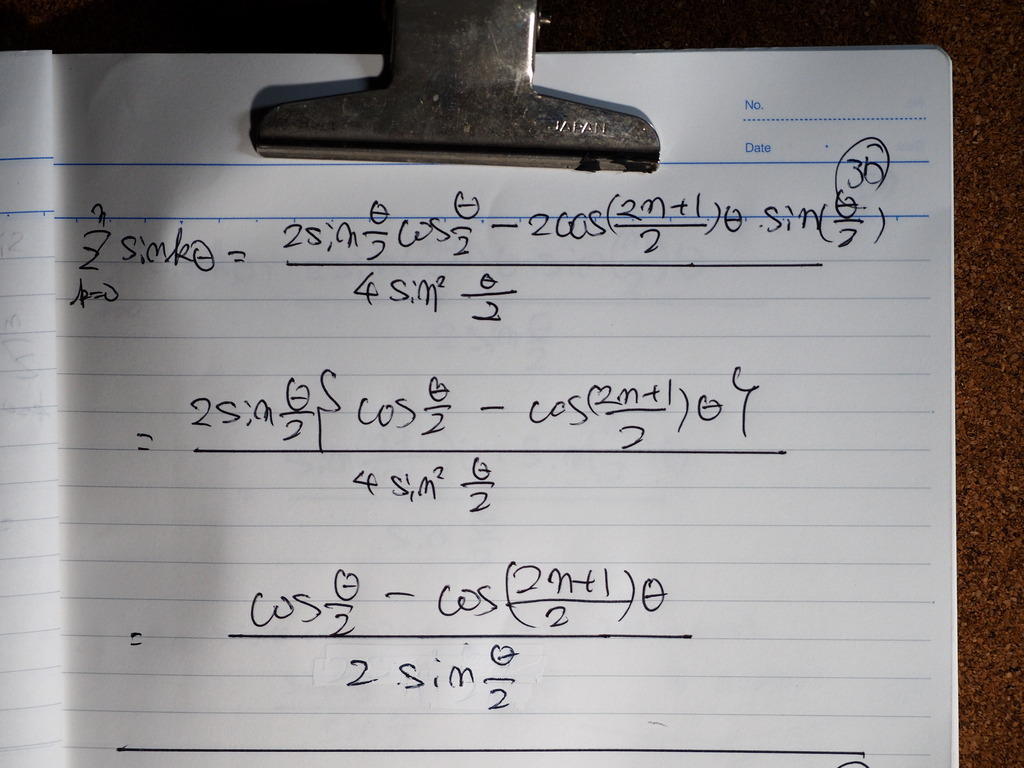 JAPAN
No.
Date
36
n
Σ sin kθ = (2 sin θ/2 cos θ/2 − 2cos((2n+1)/2)θ · sin(θ/2)) / (4 sin² θ/2)
k=0
= (2 sin θ/2 { cos θ/2 − cos((2n+1)/2)θ }) / (4 sin² θ/2)
= (cos θ/2 − cos((2n+1)/2)θ) / (2 sin θ/2)